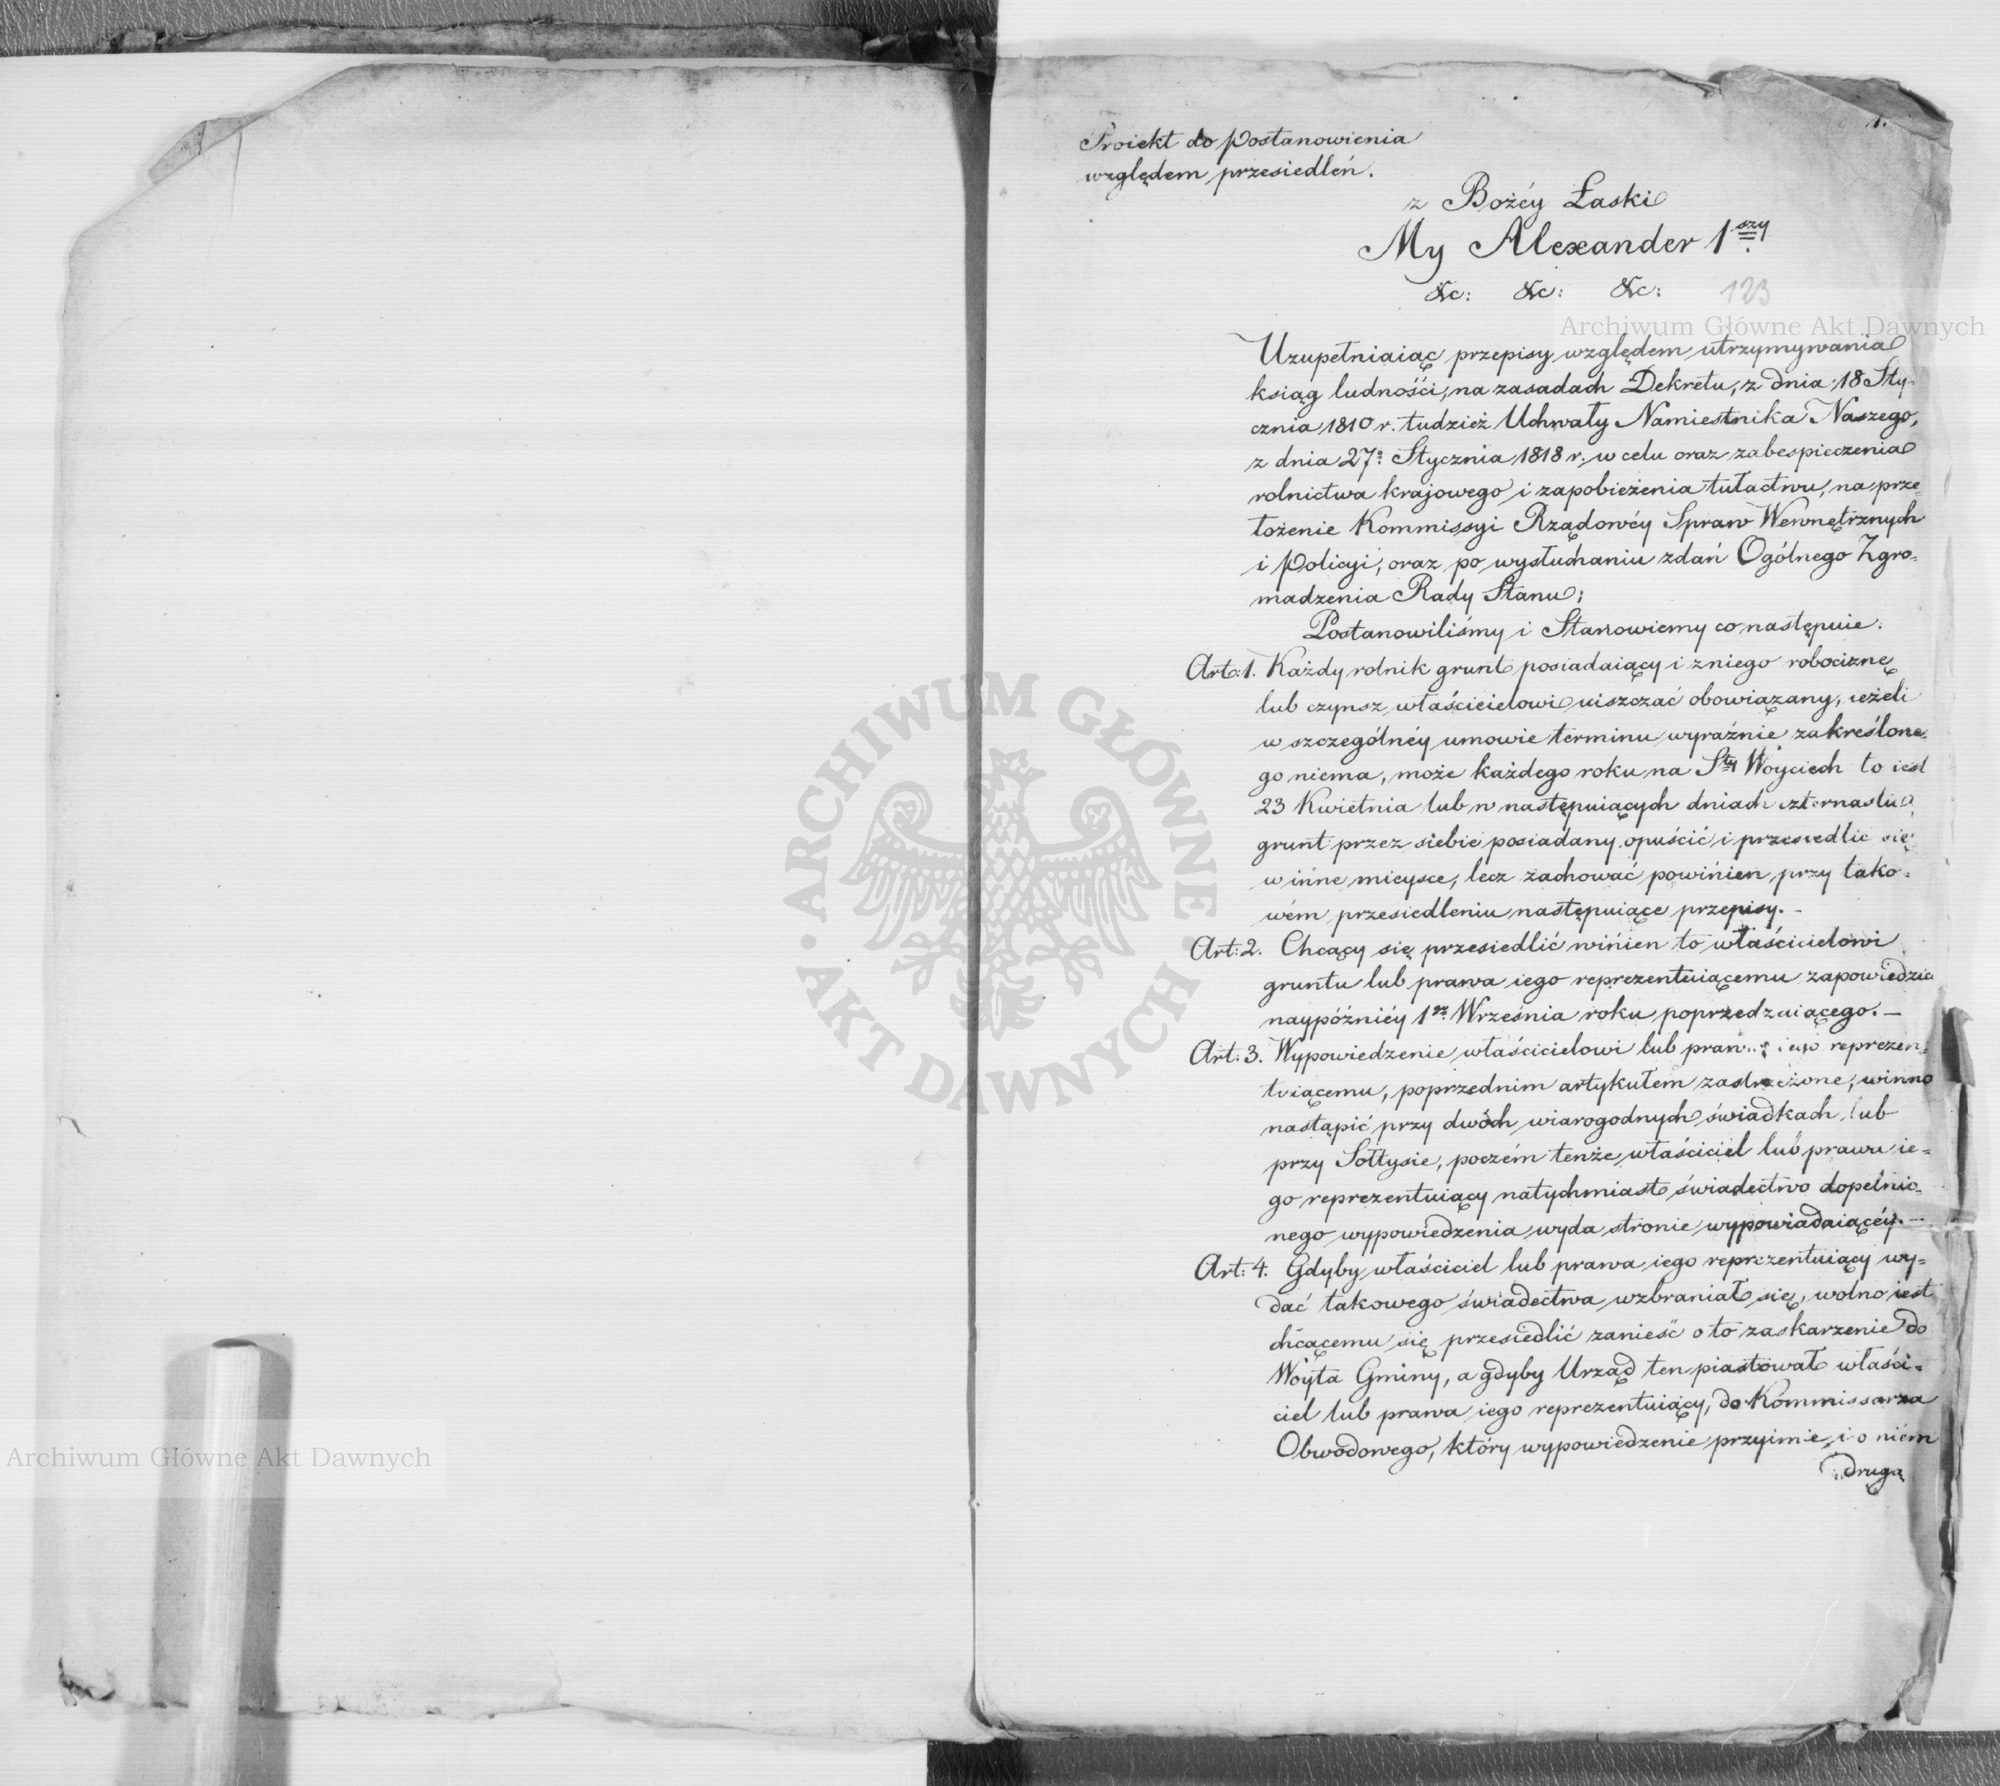 1.
Proiekt do Postanowienia
względem przesiedleń.
z Bożéy Łaski
My Alexander 1szy
&c: &c: &c:
123
Archiwum Główne Akt Dawnych
Uzupełniaiąc przepisy względem utrzymywania
ksiąg ludności, na zasadach Dekretu, z dnia 18 Sty-
cznia 1810 r. tudzież Uchwały Namiestnika Naszego,
z dnia 27o Stycznia 1818 r. w celu oraz zabespieczenia
rolnictwa krajowego i zapobieżenia tułactwu, na prze-
łożenie Kommissyi Rządowéy Spraw Wewnętrznych
i Policyi, oraz po wysłuchaniu zdań Ogólnego Zgro-
madzenia Rady Stanu;
Postanowiliśmy i Stanowiemy co następuie:
Art: 1. Każdy rolnik grunt posiadaiący i z niego robociznę
lub czynsz właścicielowi uiszczać obowiązany, ieżeli
w szczególnéy umowie terminu wyraźnie zakreślone-
go niema, może każdego roku na Sty Woyciech to iest
23 Kwietnia lub w następuiących dniach czternastu
grunt przez siebie posiadany opuścić i przesiedlić się
w inne mieysce, lecz zachować powinien przy tako-
wém przesiedleniu następuiące przepisy. -
Art: 2. Chcący się przesiedlić winien to właścicielowi
gruntu lub prawa iego reprezentuiącemu zapowiedzieć
naypóźniéy 1go Września roku poprzedzaiącego. -
Art: 3. Wypowiedzenie właścicielowi lub prawa iego reprezen-
tuiącemu, poprzednim artykułem zastrzeżone, winno
nastąpić przy dwóch wiarogodnych świadkach lub
przy Sołtysie, poczém tenże właściciel lub prawa ie-
go reprezentuiący natychmiast świadectwo dopełnio-
nego wypowiedzenia wyda stronie wypowiadaiącéy. -
Art: 4. Gdyby właściciel lub prawa iego reprezentuiący wy-
dać takowego świadectwa wzbraniał się, wolno iest
chcącemu się przesiedlić zanieść o to zaskarzenie do
Wóyta Gminy, a gdyby Urząd ten piastował właści-
ciel lub prawa iego reprezentuiący, do Kommissarza
Obwodowego, który wypowiedzenie przyimie, i o niém
drugą
ARCHIWUM GŁÓWNE
AKT DAWNYCH
Archiwum Główne Akt Dawnych